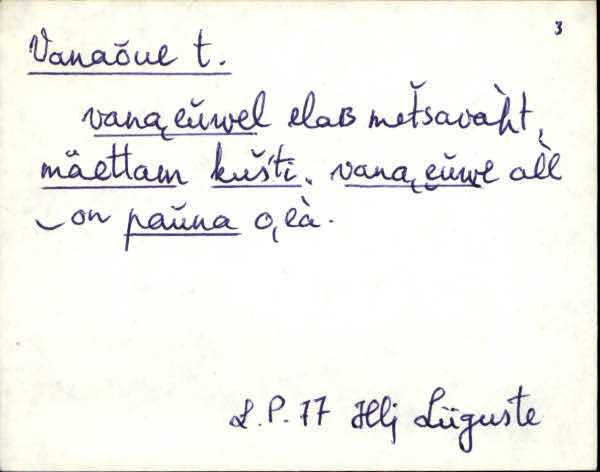 3
Vanaõue t.
vana̭ ĕŭwel elaʙ metšavàht,
mäettam kušti. vana̭ ĕŭwe all
on paŭna o̭là.
L.P. 77 Hlj Liiguste